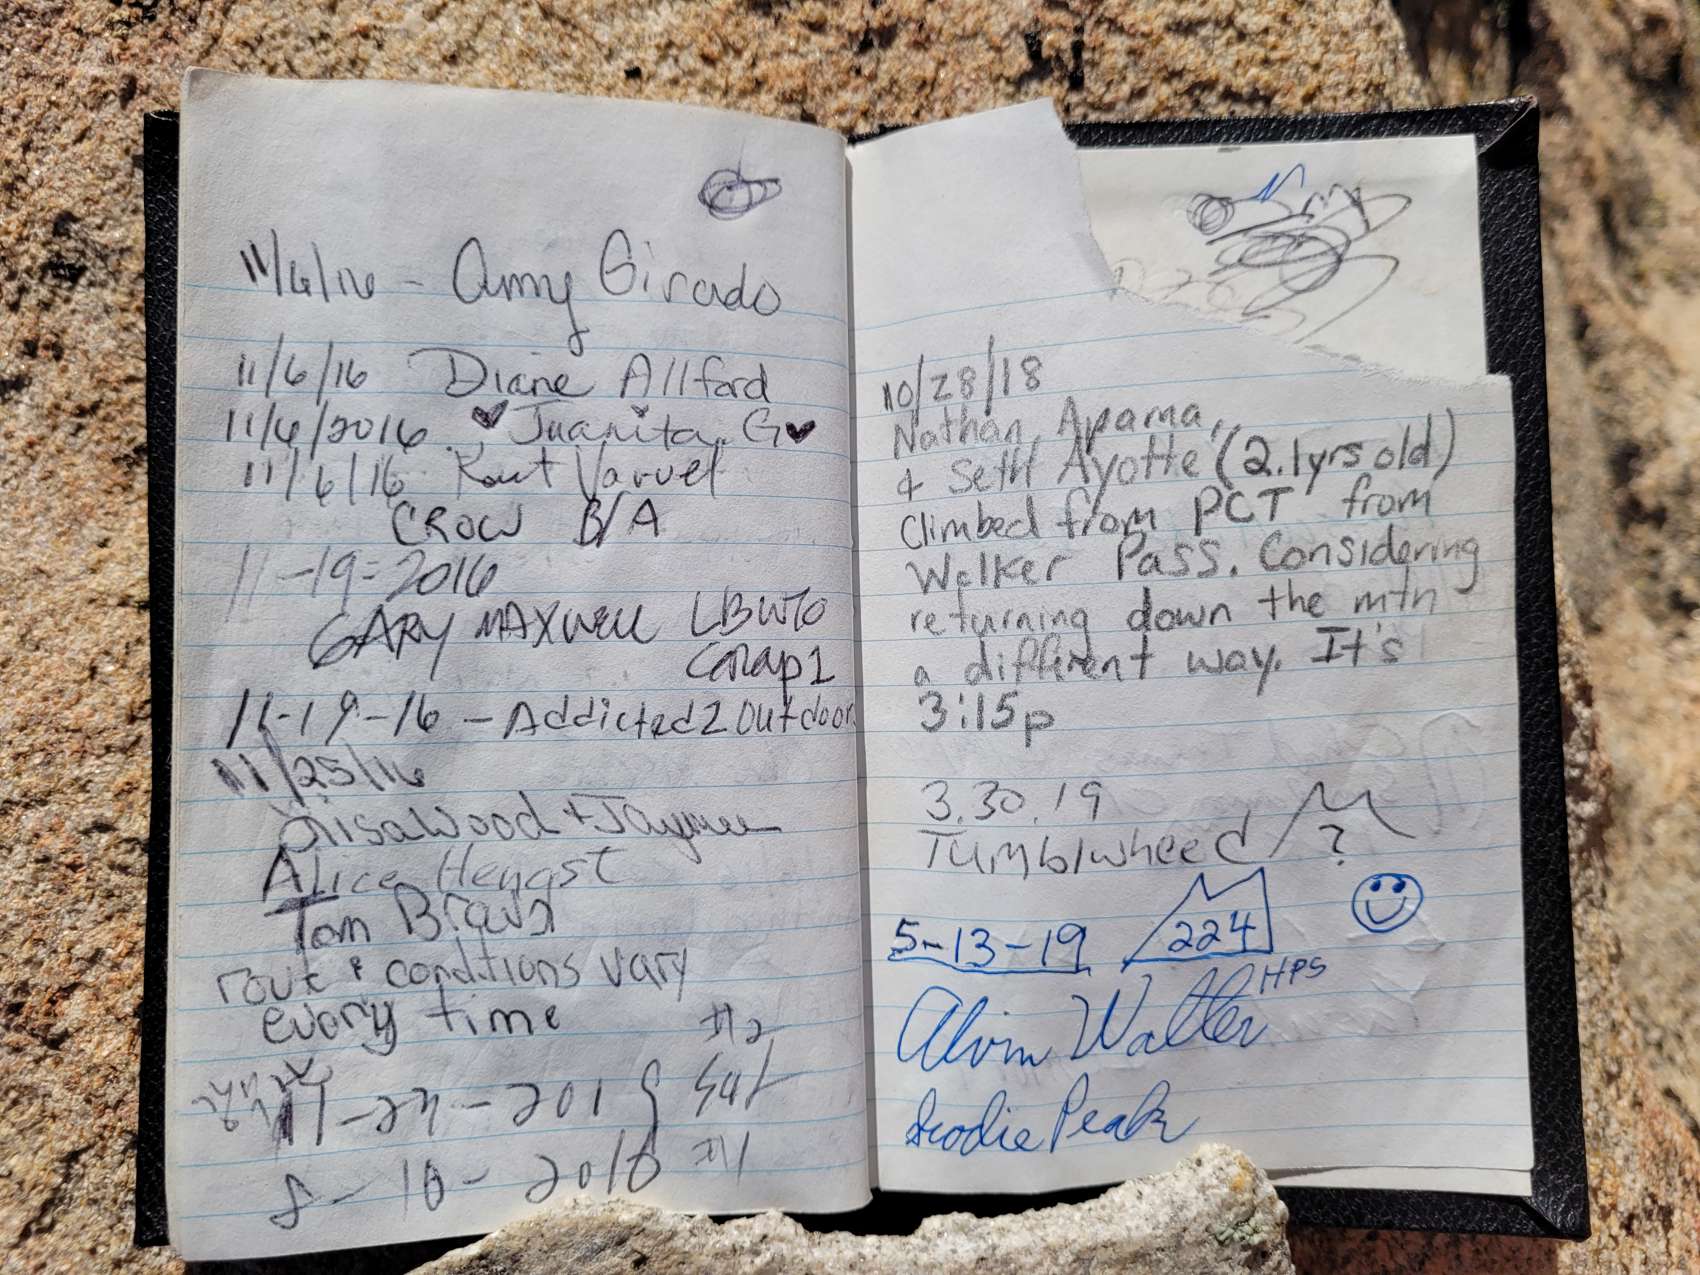 11/6/16 - Amy Girado
11/6/16 Diane Allford
11/6/2016 Juanita G
11/6/16 Kurt Varvel
CROW B/A
11-19-2016
GARY MAXWELL LBWTO
11-19-16 - Addicted2Outdoors
11/25/16
Wood + Jaymee
Alice Hengst
Tom
rout & conditions vary
every time
#2
11-24-2018 Sat
8-10-2018 #1
10/28/18
Nathan, Aparna,
& Seth Ayotte (2.1yrs old)
Climbed from PCT from
Walker Pass. Considering
returning down the mtn
a different way. It's
3:15p
3.30.19
Tumblwheed
?
5-13-19 224
HPS
Alvin Walter
Peak